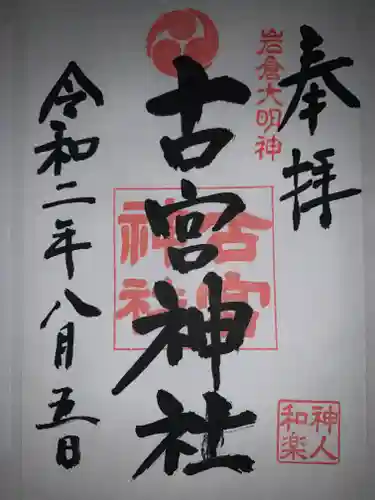 奉拝
岩倉大明神
古宮神社
古宮
神社
神人
和楽
令和二年八月五日